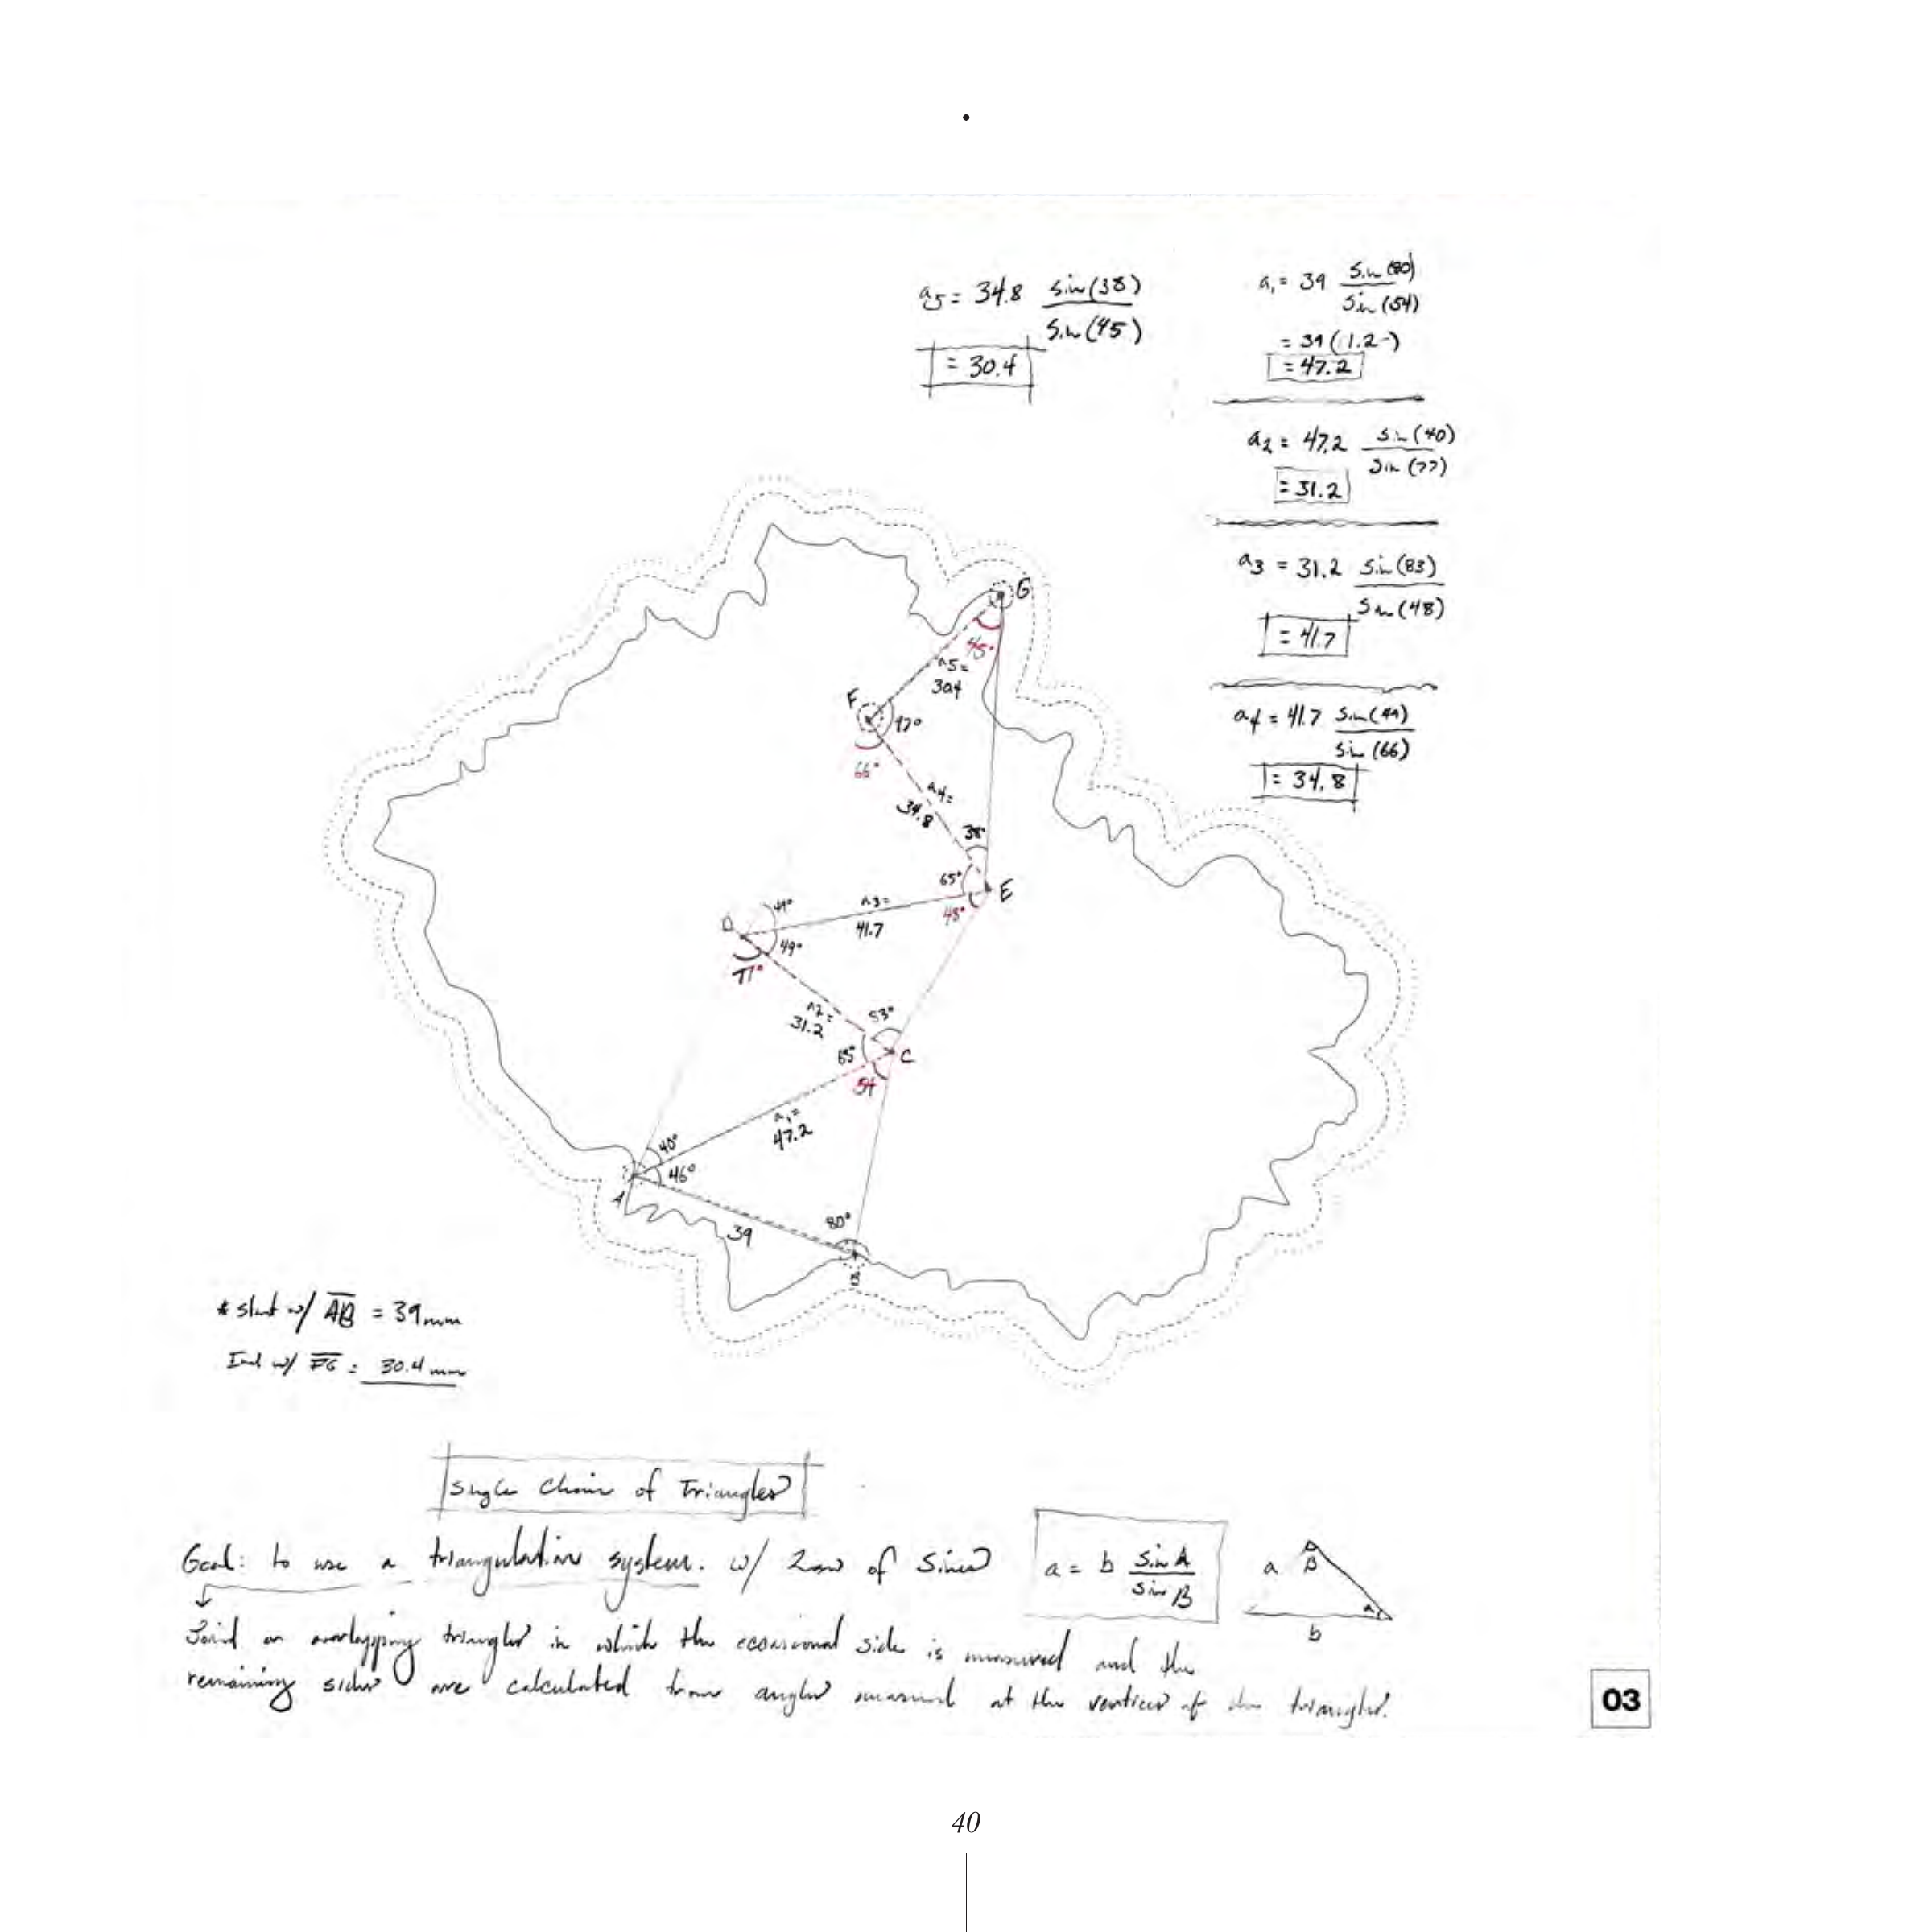 a5 = 34.8 sin(38)
sin(45)
= 30.4
a1 = 39 sin(80)
sin(54)
= 39(1.2-)
= 47.2
a2 = 47.2 sin(40)
sin(77)
= 31.2
a3 = 31.2 sin(83)
sin(48)
= 41.7
a4 = 41.7 sin(49)
sin(66)
= 34.8
G
45°
a5=
30.4
F
97°
66°
a4=
34.8
38°
65°
E
48°
a3=
41.7
D
49°
77°
a2=
31.2
83°
C
54
a1=
47.2
40°
46°
A
80°
39
B
* start w/ AB = 39mm
End w/ FG = 30.4 mm
Single Chain of Triangles
Goal: to use a triangulation system. w/ Law of Sines
a = b sin A
sin B
a
B
A
b
Joind or overlapping triangles in which the occasional side is measured and the
remaining sides are calculated from angles measured at the vertices of the triangles.
03
40